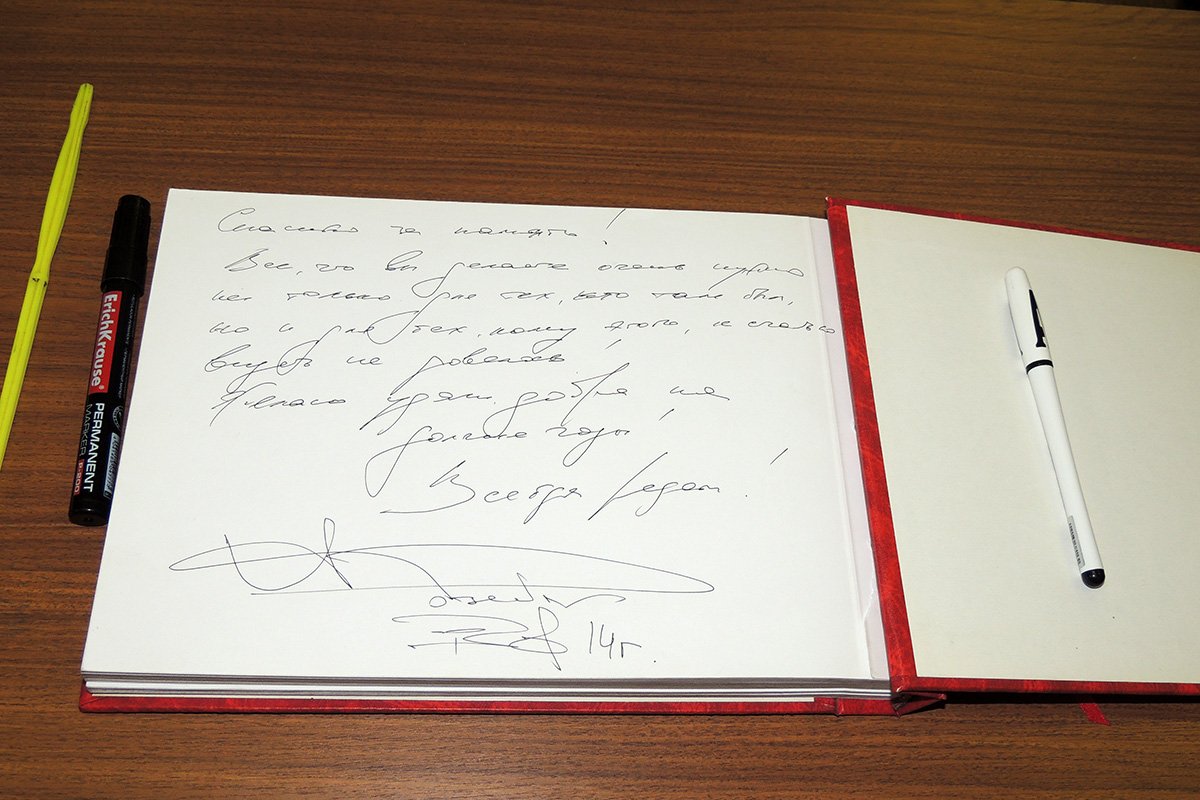 Спасибо за память!
Все, что вы делаете очень нужно
не только для тех, кто там был,
но и для тех, кому этого, к счастью
видеть не довелось!
Желаю удачи, добра на
долгие годы!
Всегда рядом!
14г.
ErichKrause®
PERMANENT
MARKER P-200